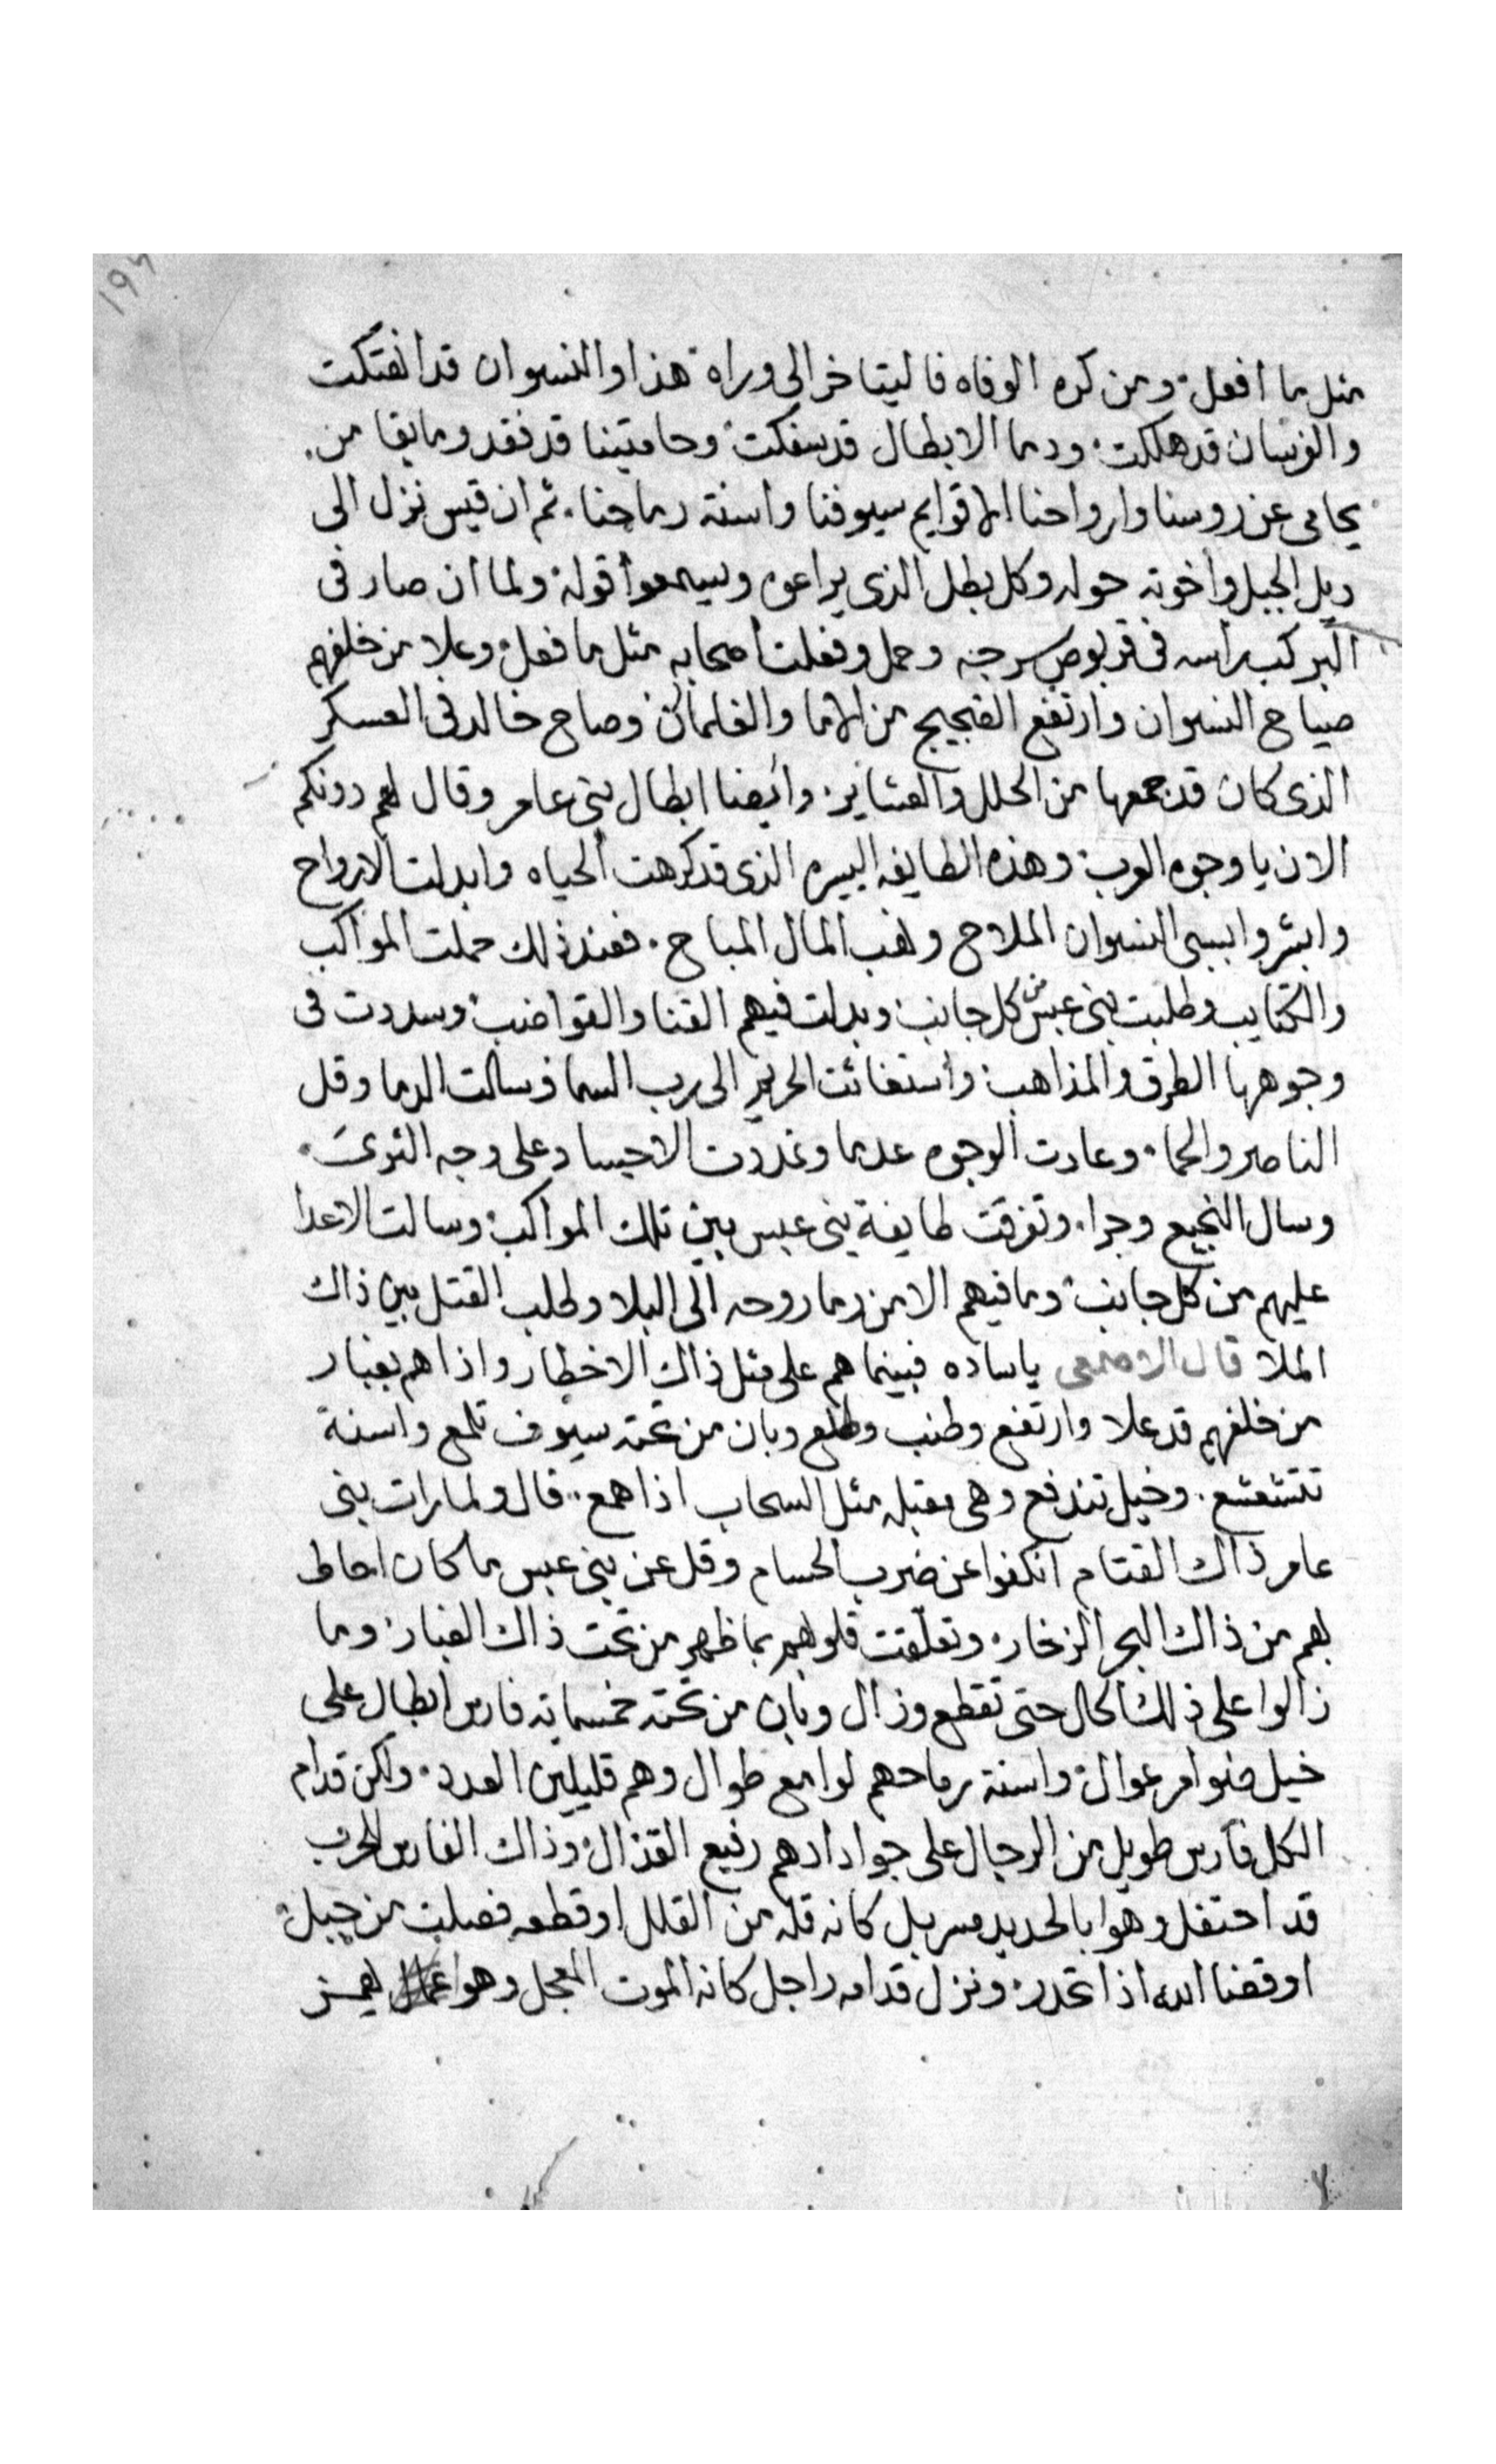 مثل ما افعل ومن كره الوفاه فاليتاخر الى وراه هذا والنسوان قد انفتكت
والفرسان قد هلكت ودما الابطال قد سفكت وحاميتنا قد فقد وما بقا من
يحامى عن روسنا وارواحنا الا قوايم سيوفنا واسنة رماحنا ثم ان قيس نزل الى
ديل الجبل واخوته حوله وكل بطل الذى يراعوه ويسمعوا قوله ولما ان صار فى
البر كب راسه فى قربوص سرجه وحمل وفعلت اصحابه مثل ما فعل وعلا من خلفهم
صياح النسوان وارتفع الضجيج من الاما والغلمان وصاح خالد فى العسكر
الذى كان قد جمعها من الحلل والعشاير وايضا ابطال بنى عامر وقال لهم دونكم
الان يا وجوه العرب وهذه الطايفه اليسره الذى قد كرهت الحياه وابدلت الارواح
وابشروا بسبى النسوان الملاح ونهب المال المباح فعند ذلك حملت المواكب
والكتايب وطلبت بنى عبس من كل جانب وبدلت فيهم القنا والقواضب وسددت فى
وجوهها الطرق والمذاهب واستغاثت الحريم الى رب السما وسالت الدما وقل
الناصر والحما وعادت الوجوه عدما وغدرت الاجساد على وجه الثرى
وسال النجيع وجرا وتفرقت طايفة بنى عبس بين تلك المواكب وسالت الاعدا
عليهم من كل جانب وما فيهم الا من رما روحه الى البلا وطلب القتل بين ذاك
الملا قال الاصمعى ياساده فبينما هم على مثل ذاك الاخطار واذا هم بغبار
من خلفهم قد علا وارتفع وطنب وطلع وبان من تحته سيوف تلمع واسنة
تتشعشع وخيل تندفع وهى مقبله مثل السحاب اذا همع قال ولما رات بنى
عامر ذاك القتام انكفوا عن ضرب الحسام وقل عن بنى عبس ما كان احاط
بهم من ذاك البحر الزخار وتعلقت قلوبهم بما ظهر من تحت ذاك الغبار وما
زالوا على ذلك الحال حتى تقطع وزال وبان من تحته خمسمايه فارس ابطال على
خيل ضوامر عوال واسنة رماحهم لوامع طوال وهم قليلين العدد ولكن قدام
الكل فارس طويل من الرجال على جواد ادهم رفيع القذال وذاك الفارس للحرب
قد احتفل وهوا بالحديد مسربل كانه قله من القلل او قطعه فصلت من جبل
او قضا الله اذا تحدر ونزل قدامه راجل كانه الموت المعجل وهوا يهمز